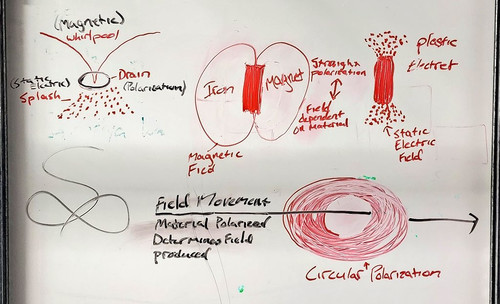 (Magnetic)
whirlpool
(Static Electric)
Splash
Drain
(Polarization)
Iron
Magnet
Magnetic
Field
Straight
polarization
Field
dependent
on Material
plastic
Electret
Static
Electric
Field
Field Movement
Material Polarized
Determines Field
produced
Circular Polarization